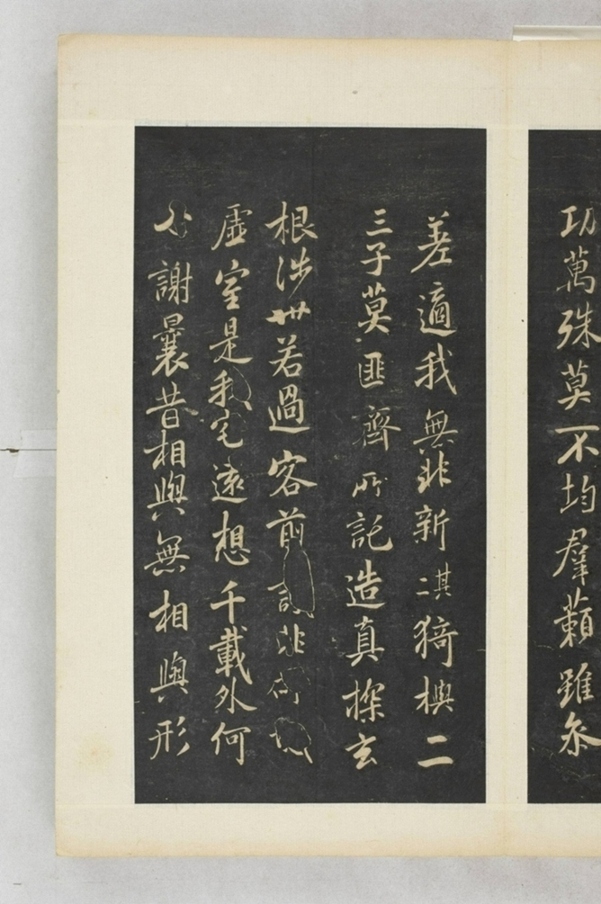 功萬殊莫不均羣籟雖參
差適我無非新其二猗歟二
三子莫匪齊所託造真探玄
根涉世若過客前識非所期
虛室是我宅遠想千載外何
必謝曩昔相與無相與形